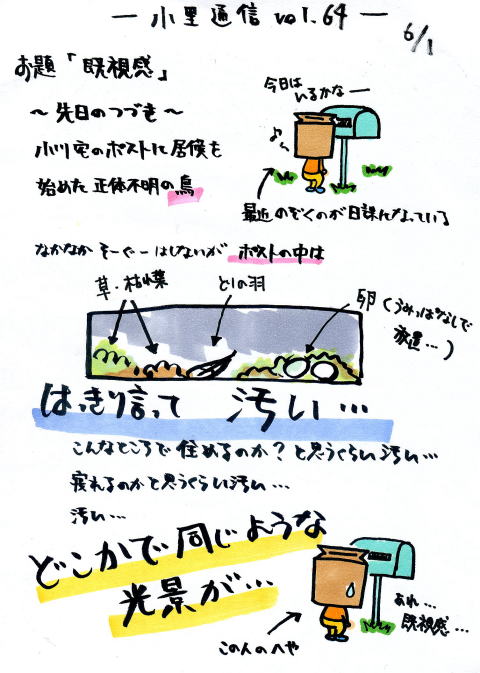 ー 小里通信 vol.64 ー
6/1
お題「既視感」
〜先日のつづき〜
小川宅のポストに居候を
始めた正体不明の鳥
今日は
いるかなー
最近のぞくのが日課になっている
なかなかそーぐーはしないが ポストの中は
草・枯れ葉
とりの羽
卵(うみっぱなしで
放置…)
はっきり言って 汚い…
こんなところで住めるのか?と思うくらい汚い…
寝れるのかと思うくらい汚い…
汚い…
どこかで同じような
光景が…
あれ…
既視感…
この人のへや